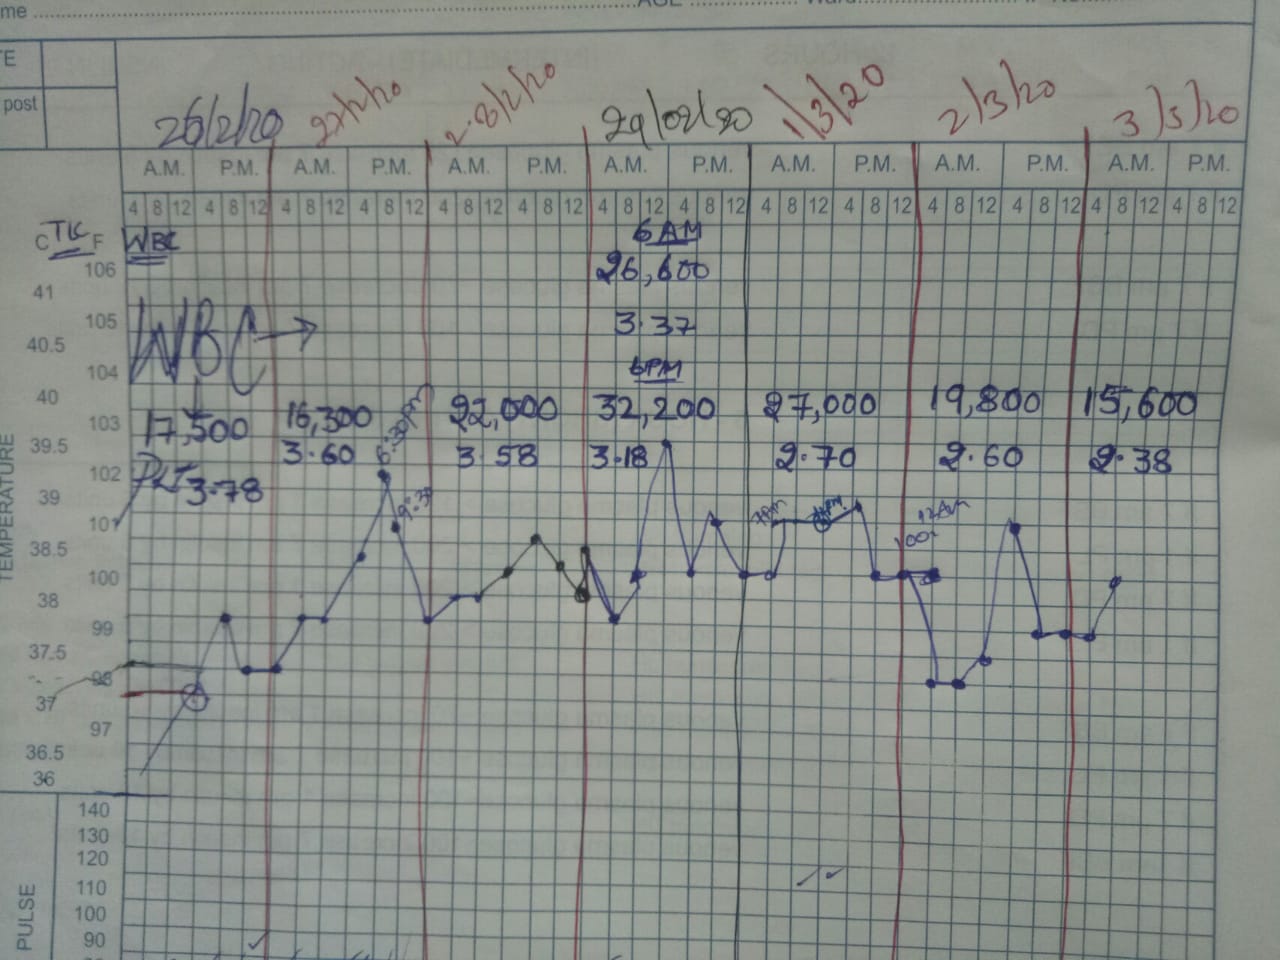 me ........ AGE ........ Ward ........
TE
post
26/2/20 27/2/20 28/2/20 29/02/20 1/3/20 2/3/20 3/3/20
A.M. P.M. A.M. P.M. A.M. P.M. A.M. P.M. A.M. P.M. A.M. P.M. A.M. P.M.
4 8 12 4 8 12 4 8 12 4 8 12 4 8 12 4 8 12 4 8 12 4 8 12 4 8 12 4 8 12 4 8 12 4 8 12 4 8 12 4 8 12
C TLC F WBC 6 AM
106 26,600
41
105 3.37
WBC →
40.5
104 6PM
40
103 17,500 16,300 22,000 32,200 27,000 19,800 15,600
39.5 3.60 6:30pm 3.58 3.18 2.70 2.60 2.38
102 PLT 3.78
39 9:30
101 12AM
38.5
100
38
99
37.5
98
37
97
36.5
36
TEMPERATURE
140
130
120
110
100
90
PULSE